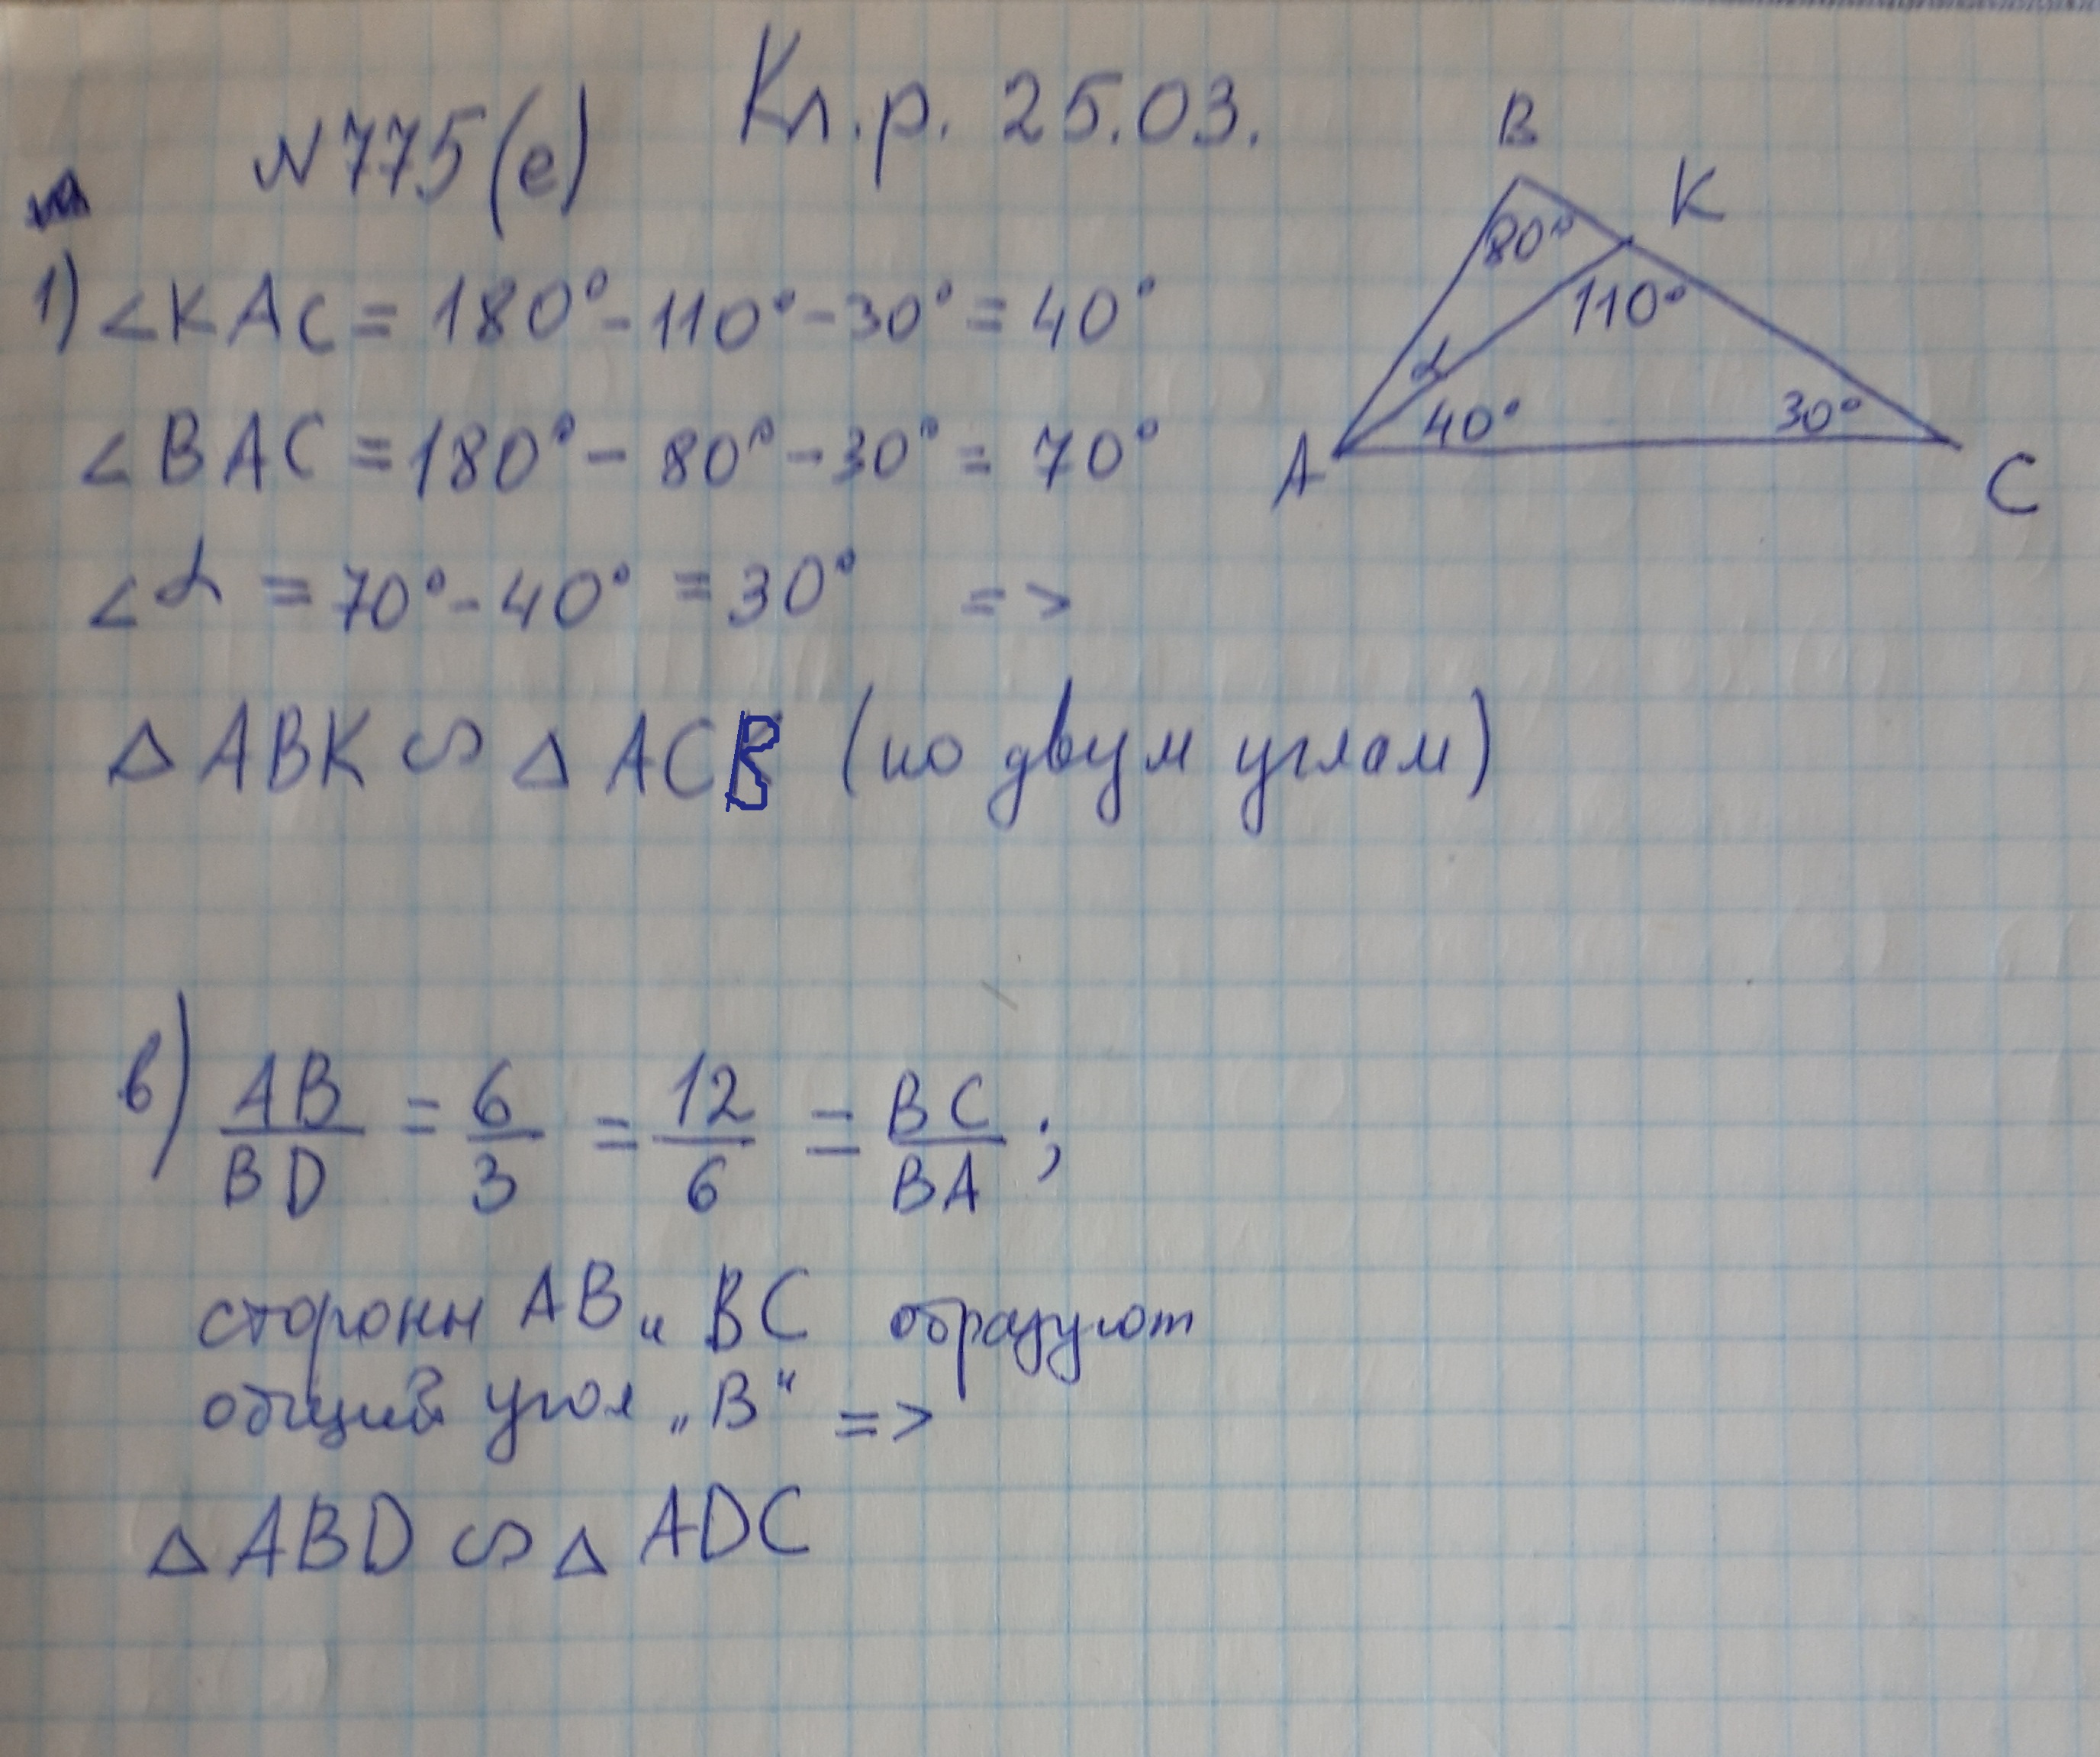 Кл.р. 25.03.
N775(е)
1) ∠KAC = 180° - 110° - 30° = 40°
∠BAC = 180° - 80° - 30° = 70°
∠α = 70° - 40° = 30° =>
△ABK ∽ △ACB (по двум углам)
B
K
80°
110°
α
40°
30°
A
C
в) AB/BD = 6/3 = 12/6 = BC/BA ;
стороны AB и BC образуют
общий угол „B“ =>
△ABD ∽ △ADC